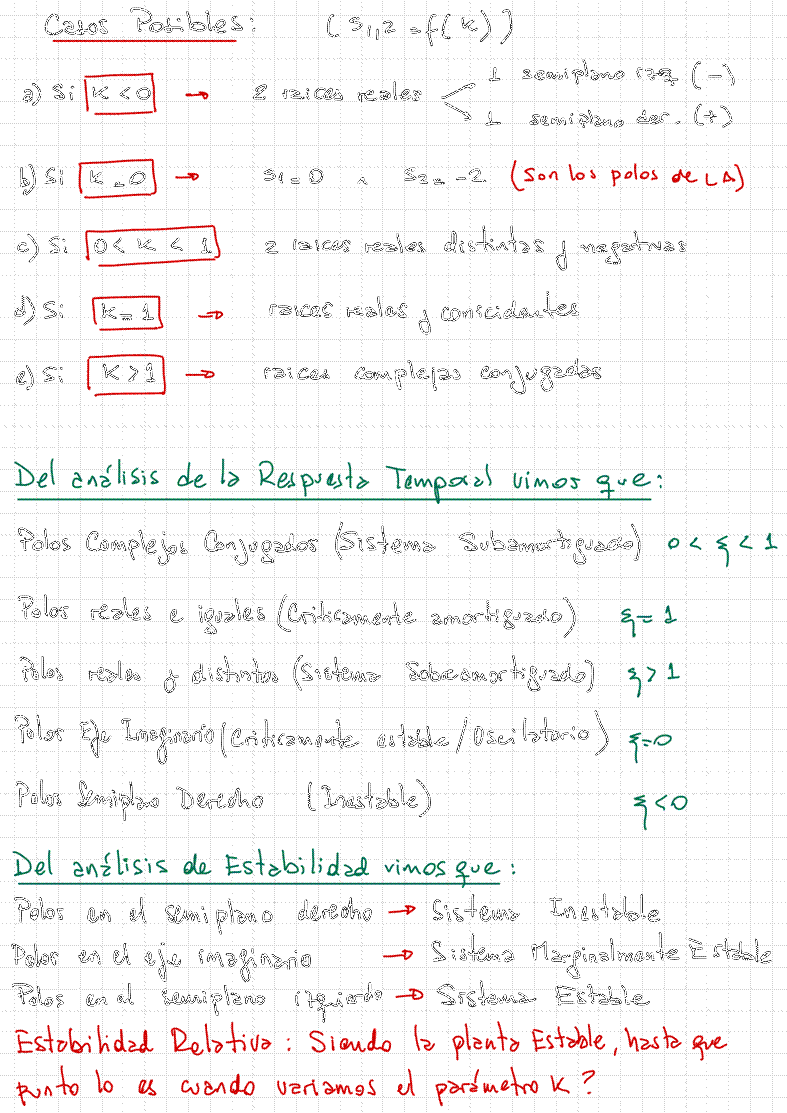 Casos Posibles: (S1,2 = f(K))
a) Si K < 0 → 2 raíces reales < 1 semiplano izq (-)
1 semiplano der. (+)
b) Si K = 0 → S1 = 0 ∧ S2 = -2 (Son los polos de LA)
c) Si 0 < K < 1 2 raíces reales distintas y negativas
d) Si K = 1 → raíces reales y conscidentes
e) Si K > 1 → raíces complejas conjugadas
Del análisis de la Respuesta Temporal vimos que:
Polos Complejos Conjugados (Sistema Subamortiguado) 0 < ξ < 1
Polos reales e iguales (Criticamente amortiguado) ξ = 1
Polos reales y distintos (Sistema Sobreamortiguado) ξ > 1
Polos Eje Imaginario (Criticamente estable / Oscilatorio) ξ = 0
Polos Semiplano Derecho (Inestable) ξ < 0
Del análisis de Estabilidad vimos que:
Polos en el semiplano derecho → Sistema Inestable
Polos en el eje imaginario → Sistema Marginalmente Estable
Polos en el semiplano izquierdo → Sistema Estable
Estabilidad Relativa: Siendo la planta Estable, hasta que
punto lo es cuando variamos el parámetro K?